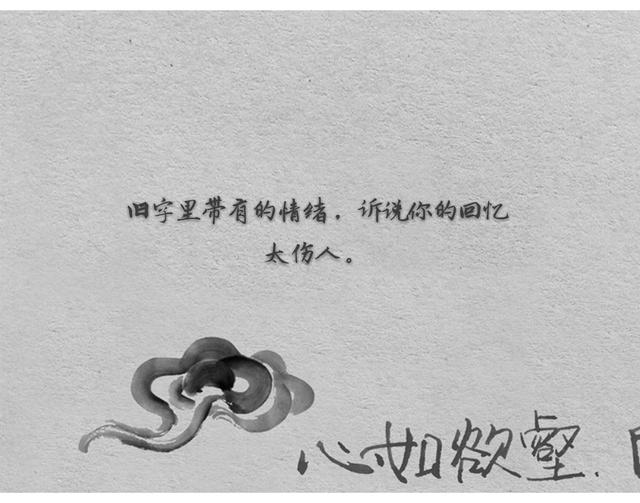 旧字里带有的情绪，诉说你的回忆
太伤人。
心如欲壑.